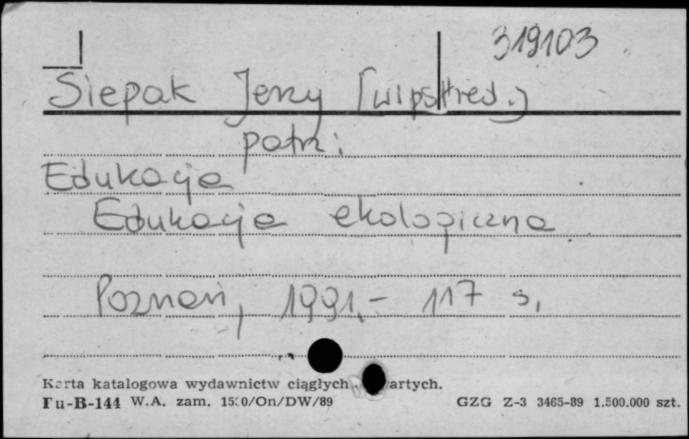 319103
Siepak Jerzy [wips.red.]
patrz:
Edukacja
Edukacja ekologiczna.
Poznań, 1991.- 117 s.
Karta katalogowa wydawnictw ciągłych
Pu-B-144 W.A. zam. /On/DW/89 GZG Z-3 3465-89 1.500.000 szt.